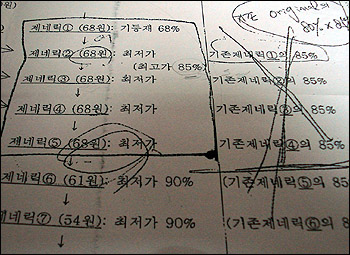 원)
제네릭① (68원): 기등재 68%
↓
제네릭② (68원): 최저가 기존제네릭①의 85%
↓ (최고가 85%)
제네릭③ (68원): 최저가 기존제네릭②의 85%
↓
제네릭④ (68원): 최저가 기존제네릭③의 85%
↓
제네릭⑤ (68원): 최저가 기존제네릭④의 85%
↓
제네릭⑥ (61원): 최저가 90% (기존제네릭⑤의 85%
↓
제네릭⑦ (54원): 최저가 90% (기존제네릭⑥의 85%
↓
original의
80% x